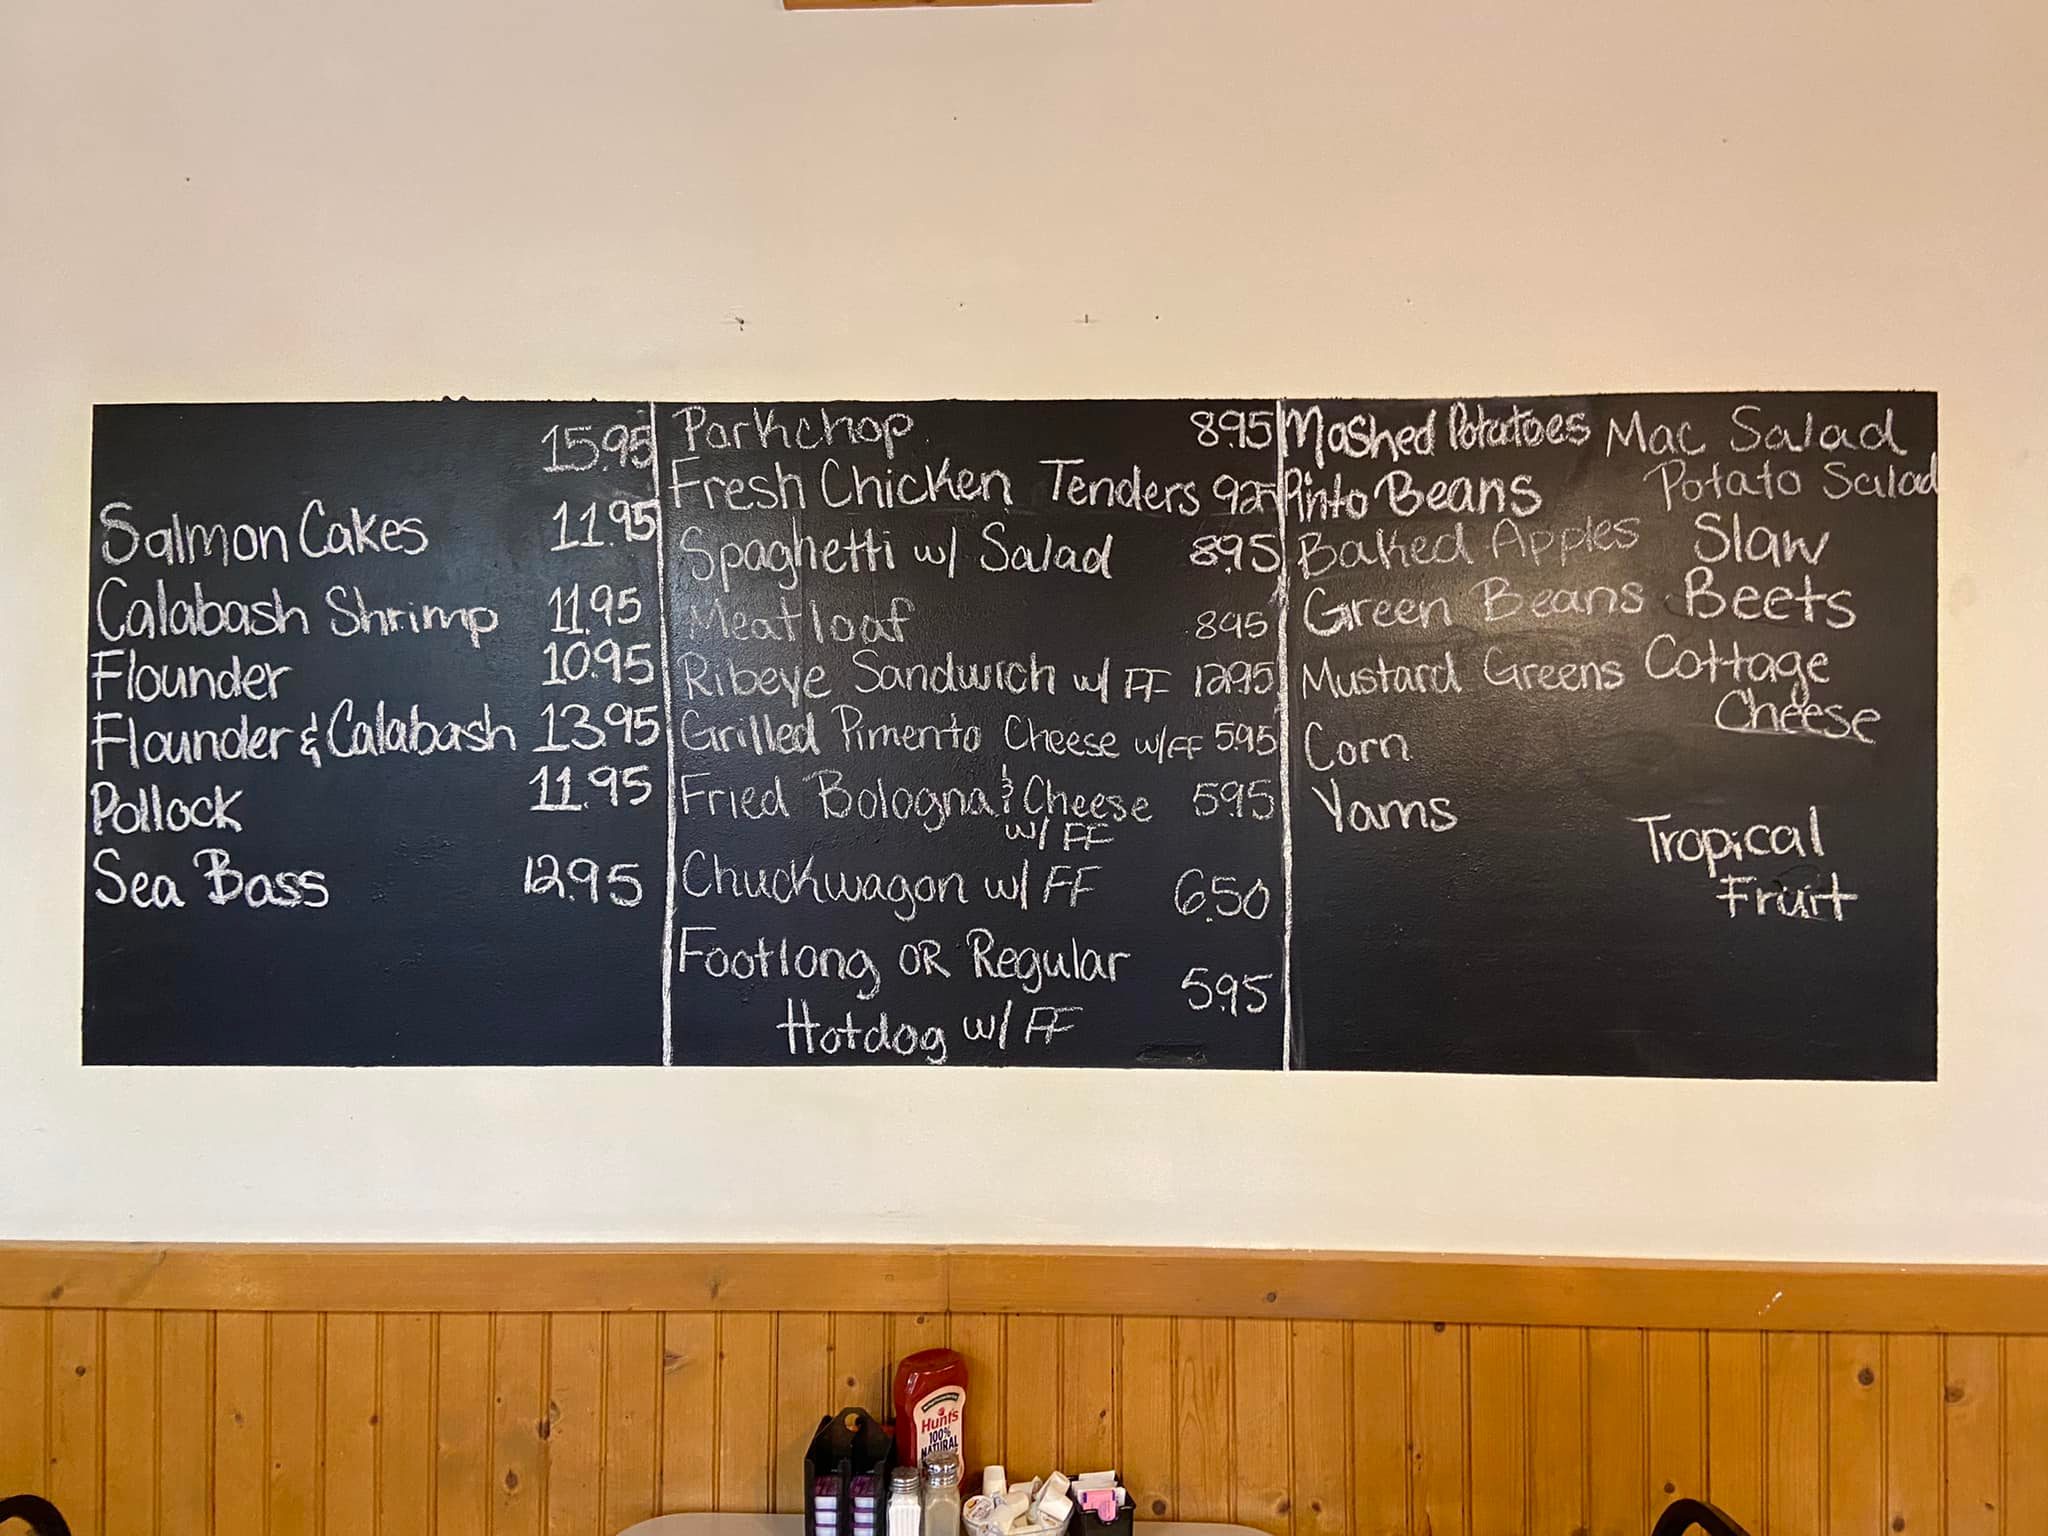 15.95
Salmon Cakes 11.95
Calabash Shrimp 11.95
Flounder 10.95
Flounder & Calabash 13.95
Pollock 11.95
Sea Bass 12.95
Porkchop 8.95
Fresh Chicken Tenders
Spaghetti w/ Salad 8.95
Meatloaf 8.95
Ribeye Sandwich w/ FF 12.95
Grilled Pimento Cheese w/FF 5.95
Fried Bologna & Cheese 5.95
w/ FF
Chuckwagon w/ FF 6.50
Footlong OR Regular 5.95
Hotdog w/ FF
Mashed Potatoes Mac Salad
Pinto Beans Potato Salad
Baked Apples Slaw
Green Beans Beets
Mustard Greens Cottage
Cheese
Corn
Yams
Tropical
Fruit
Hunt's
100%
NATURAL